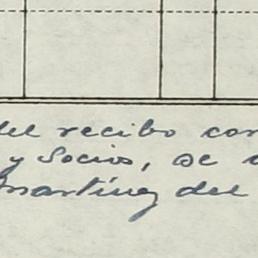 del recibo con
y Socios, se
Martínez del